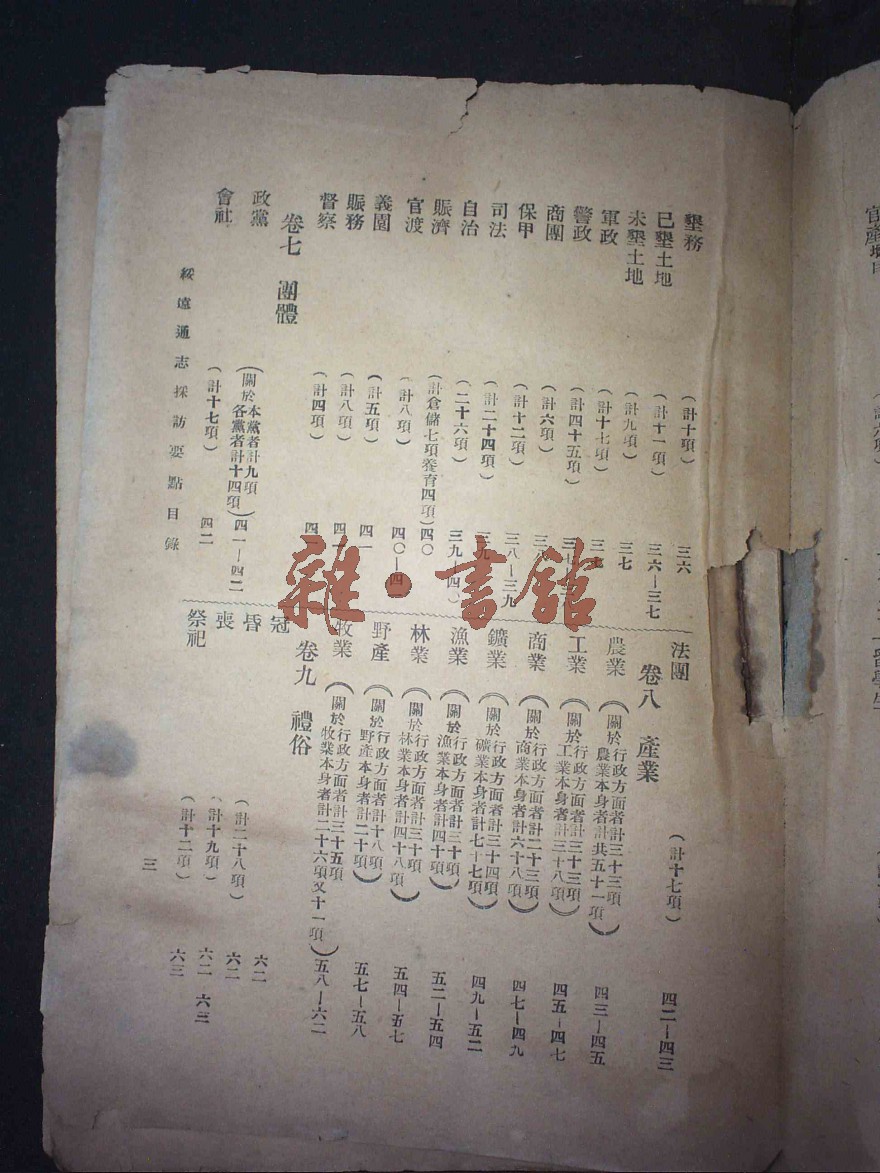 墾務 (計十項) 三六
已墾土地 (計十一項) 三六—三七
未墾土地 (計九項) 三七
軍政 (計十七項) 三七
警政 (計四十五項)
商團 (計六項)
保甲 (計十二項) 三八—三九
司法 (計二十四項)
自治 (二十六項) 三九—四〇
賑濟 (計倉儲七項養育四項) 四〇
官渡 (計八項) 四〇—四一
義園 (計五項) 四一
賑務 (計八項) 四一
督察 (計四項) 四一
卷七 團體
政黨 (關於本黨者計九項 各黨者計十四項) 四一—四二
會社 (計十七項) 四二
法團 (計十七項) 四二—四三
卷八 產業
農業 (關於行政方面者計三十三項 農業本身者計共五十一項) 四三—四五
工業 (關於行政方面者計三十三項 工業本身者計三十八項) 四五—四七
商業 (關於行政方面者計二十三項 商業本身者計六十八項) 四七—四九
鑛業 (關於行政方面者計三十四項 礦業本身者計七十七項) 四九—五二
漁業 (關於行政方面者計三十項 漁業本身者計四十項) 五二—五四
林業 (關於行政方面者計三十項 林業本身者計四十八項) 五四—五七
野產 (關於行政方面者計十八項 野產本身者計二十項) 五七—五八
牧業 (關於行政方面者計三十五項 牧業本身者計二十六項又十一項) 五八—六二
卷九 禮俗
冠 六二
昏 (計二十八項) 六二
喪 (計十九項) 六二 六三
祭祀 (計十二項) 六三
綏遠通志採訪要點目錄 三
雜·書館